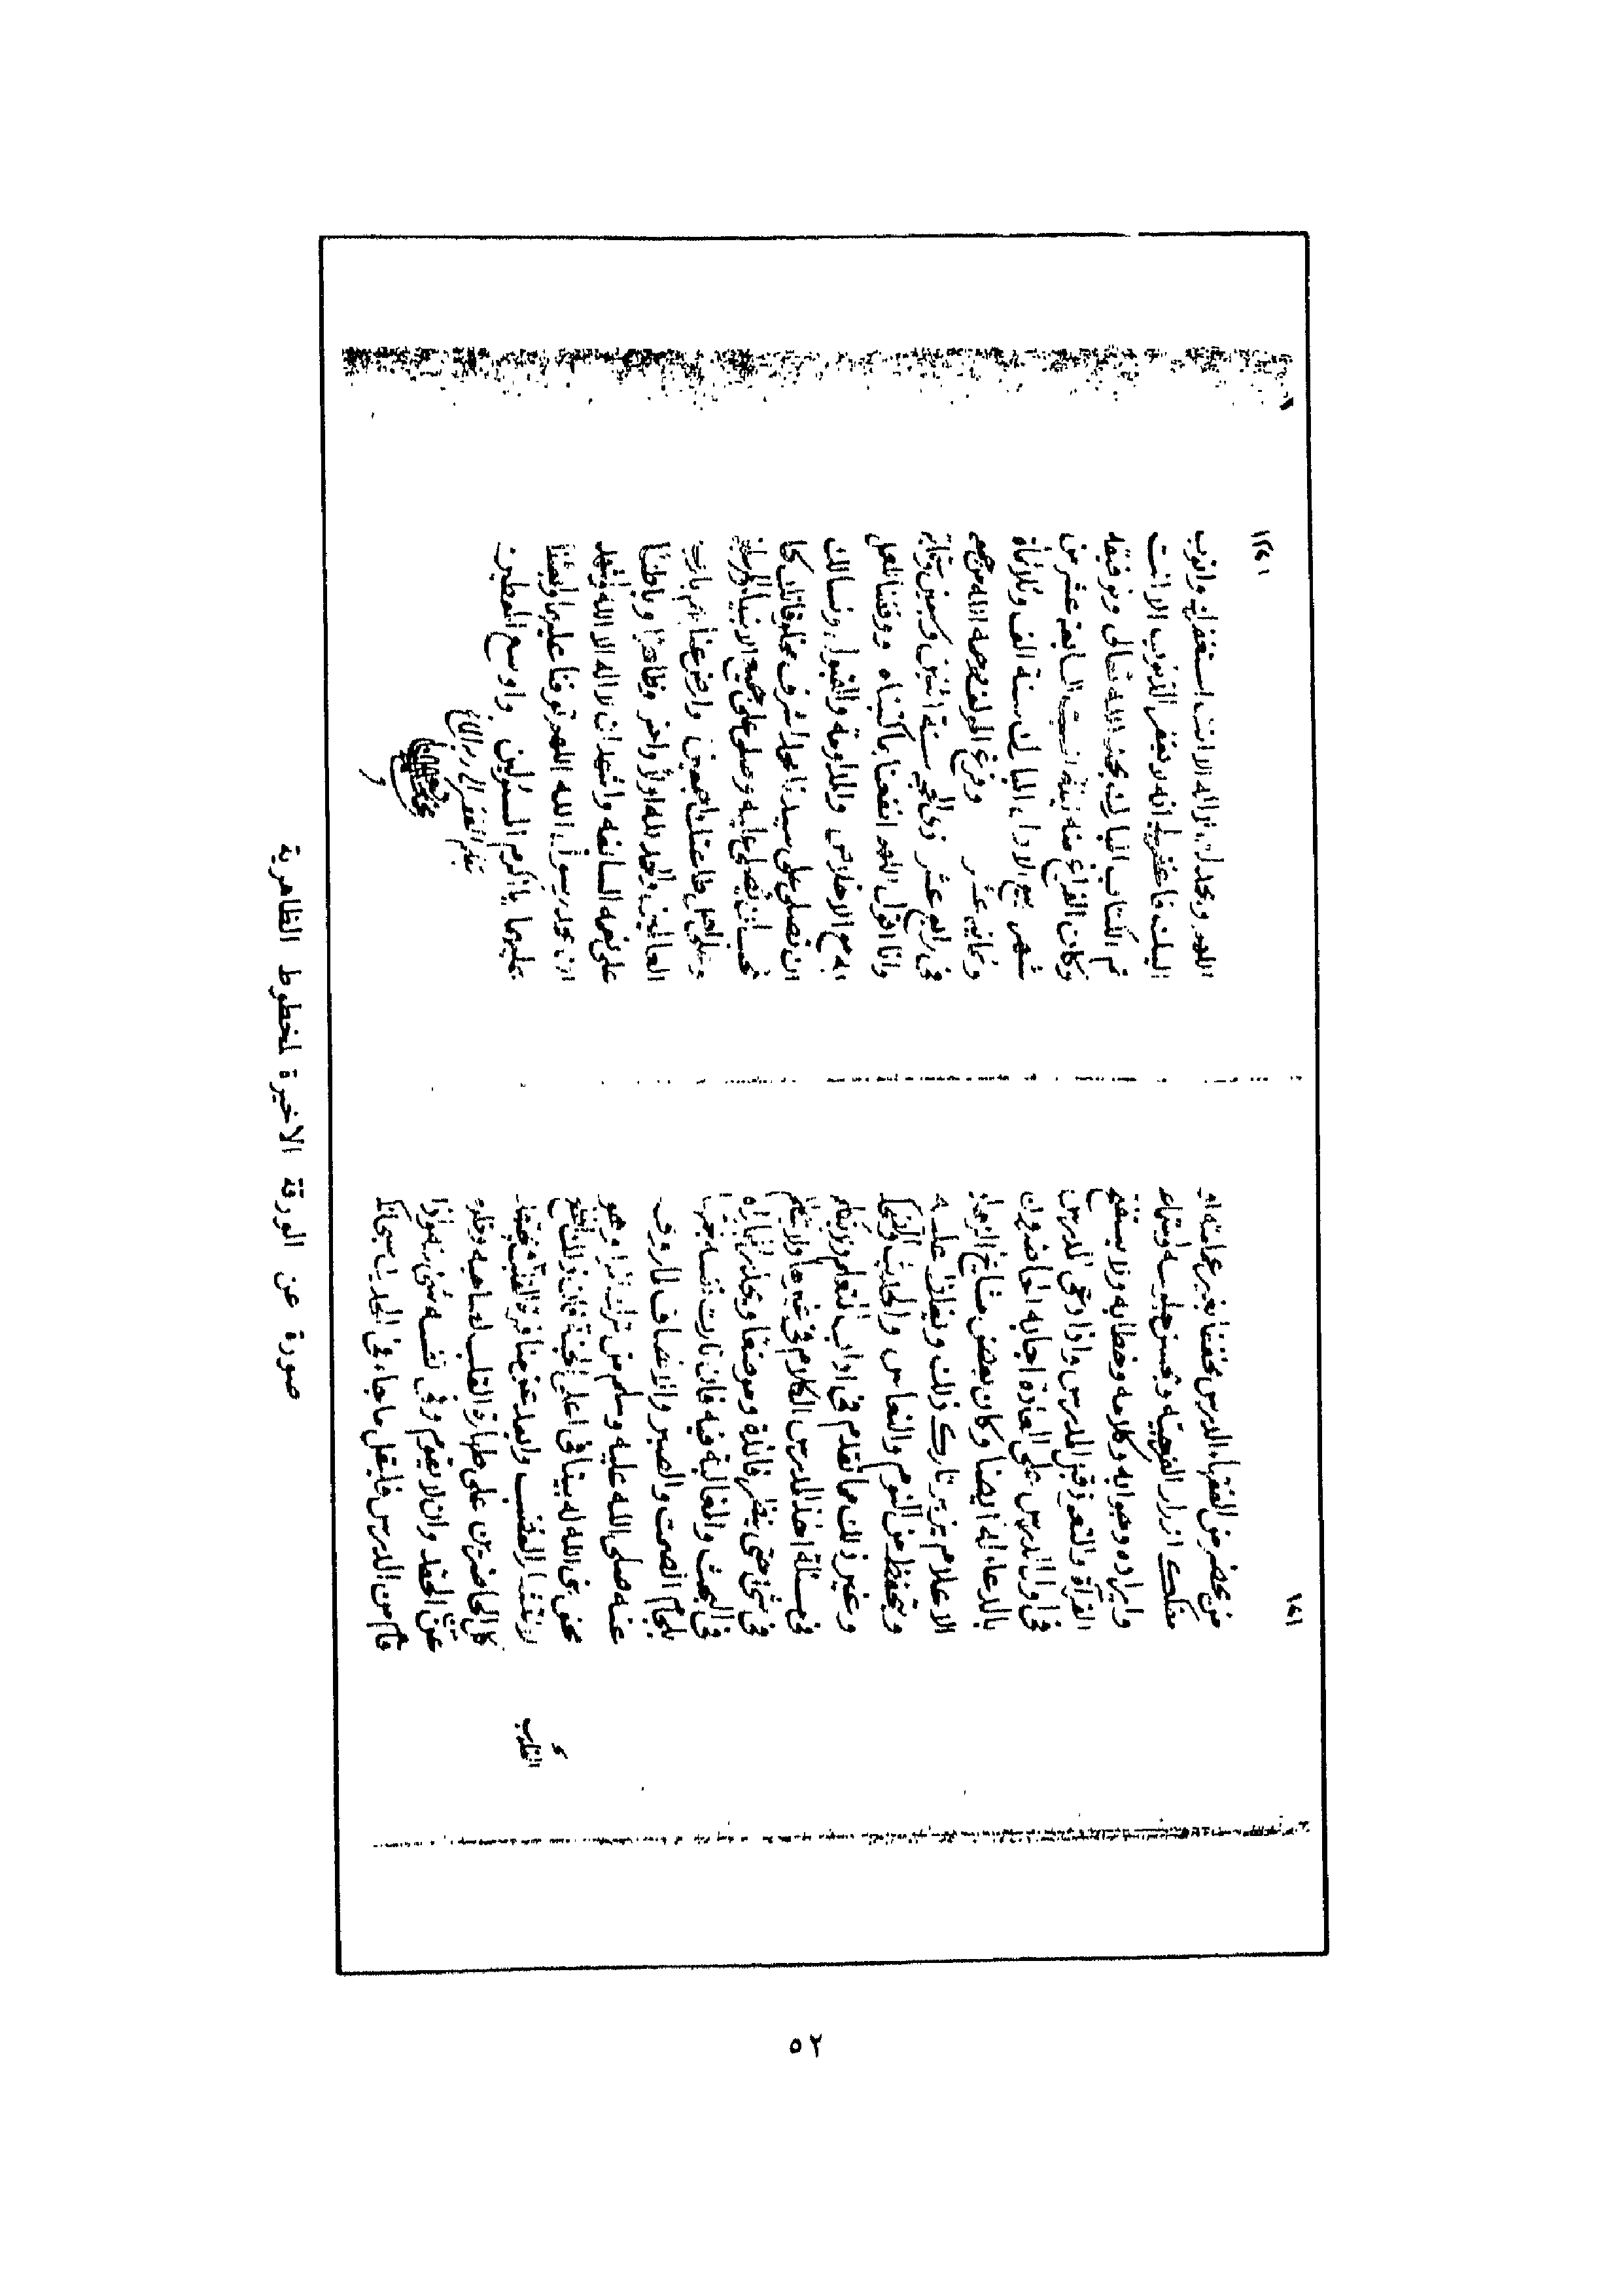 ١٥١
من يحضر من الفقهاء الدرس مخففا بغير عمامة او
مفكك ازرار الفرجية ويحسن جلوسه واستماعه
وايراده وجوابه وكلامه وخطابه ولا يستفتح
القراءة والتعوذ قبل المدرس واذا دعى المدرس
في اول الدرس على العادة اجابه الحاضرون
بالدعاء له ايضا وكان بعض مشايخ الزهاد
الاعلام يزبر تارك ذلك ويغلظ عليه
ويتحفظ من النوم والنعاس والحديث والضحك
وغير ذلك مما تقدم في اداب المتعلم ولا يتكلم
في مسئلة اخذ المدرس الكلام في غيرها ولا يتكلم
في شى حتى ينظر فائدة وموضعا ويحذر المماراة
في البحث والمغالبة فيه فان ثارت نفسه لجمها
بلجام الصمت والصبر والانقياد لما روى
عنه صلى الله عليه وسلم من ترك المراء وهو
محق بنى الله له بيتا في اعلى الجنة فان ذلك اقطع
لانتشار الغضب وابعد عن منافرة القلب فليجتهد
كل الحاضرين على طهارة القلب لصاحبه وخلوه
عن الحقد وان لا يقوم وفي نفسه شى منه واذا
قام من الدرس فليقل ما جاء في الحديث سبحانك
القلوب
اللهم وبحمدك لا اله الا انت استغفرك واتوب
اليك فاغفر لي انه لا يغفر الذنوب الا انت
تم الكتاب المبارك بحمد الله تعالى وتوفيقه
وكان الفراغ منه ليلة السبت السابعة عشر من
شهر ربيع الاول المبارك سنة الف وثلاثمائة
وثمانية عشر وفرغ المؤلف رحمه الله من جمعه
في رابع عشر ذى الحجة سنة اثنين وسبعين وستمائة
وانا اقول اللهم انفعنا بما كتبناه ووفقنا للعمل
به مع الاخلاص والمداومة والقبول ونسالك
ان تصلي على سيدنا محمد اشرف مخلوقاتك كما
تحب ان يصلى عليه وصلى على جميع الانبياء والمرسلين
وعلى اهل طاعتك اجمعين وارض عنا بهم يا رب
العالمين والحمد لله اولا واخر وظاهرا وباطنا
على نعمه السابغه واشهد ان لا اله الا الله واشهد
ان محمد رسول الله اللهم توفنا عليها وابعثنا
عليها يا اكرم المسئولين واوسع المعطين
بقلم الفقير الى
صورة عن الورقة الاخيرة لمخطوط الظاهرية
٥٢